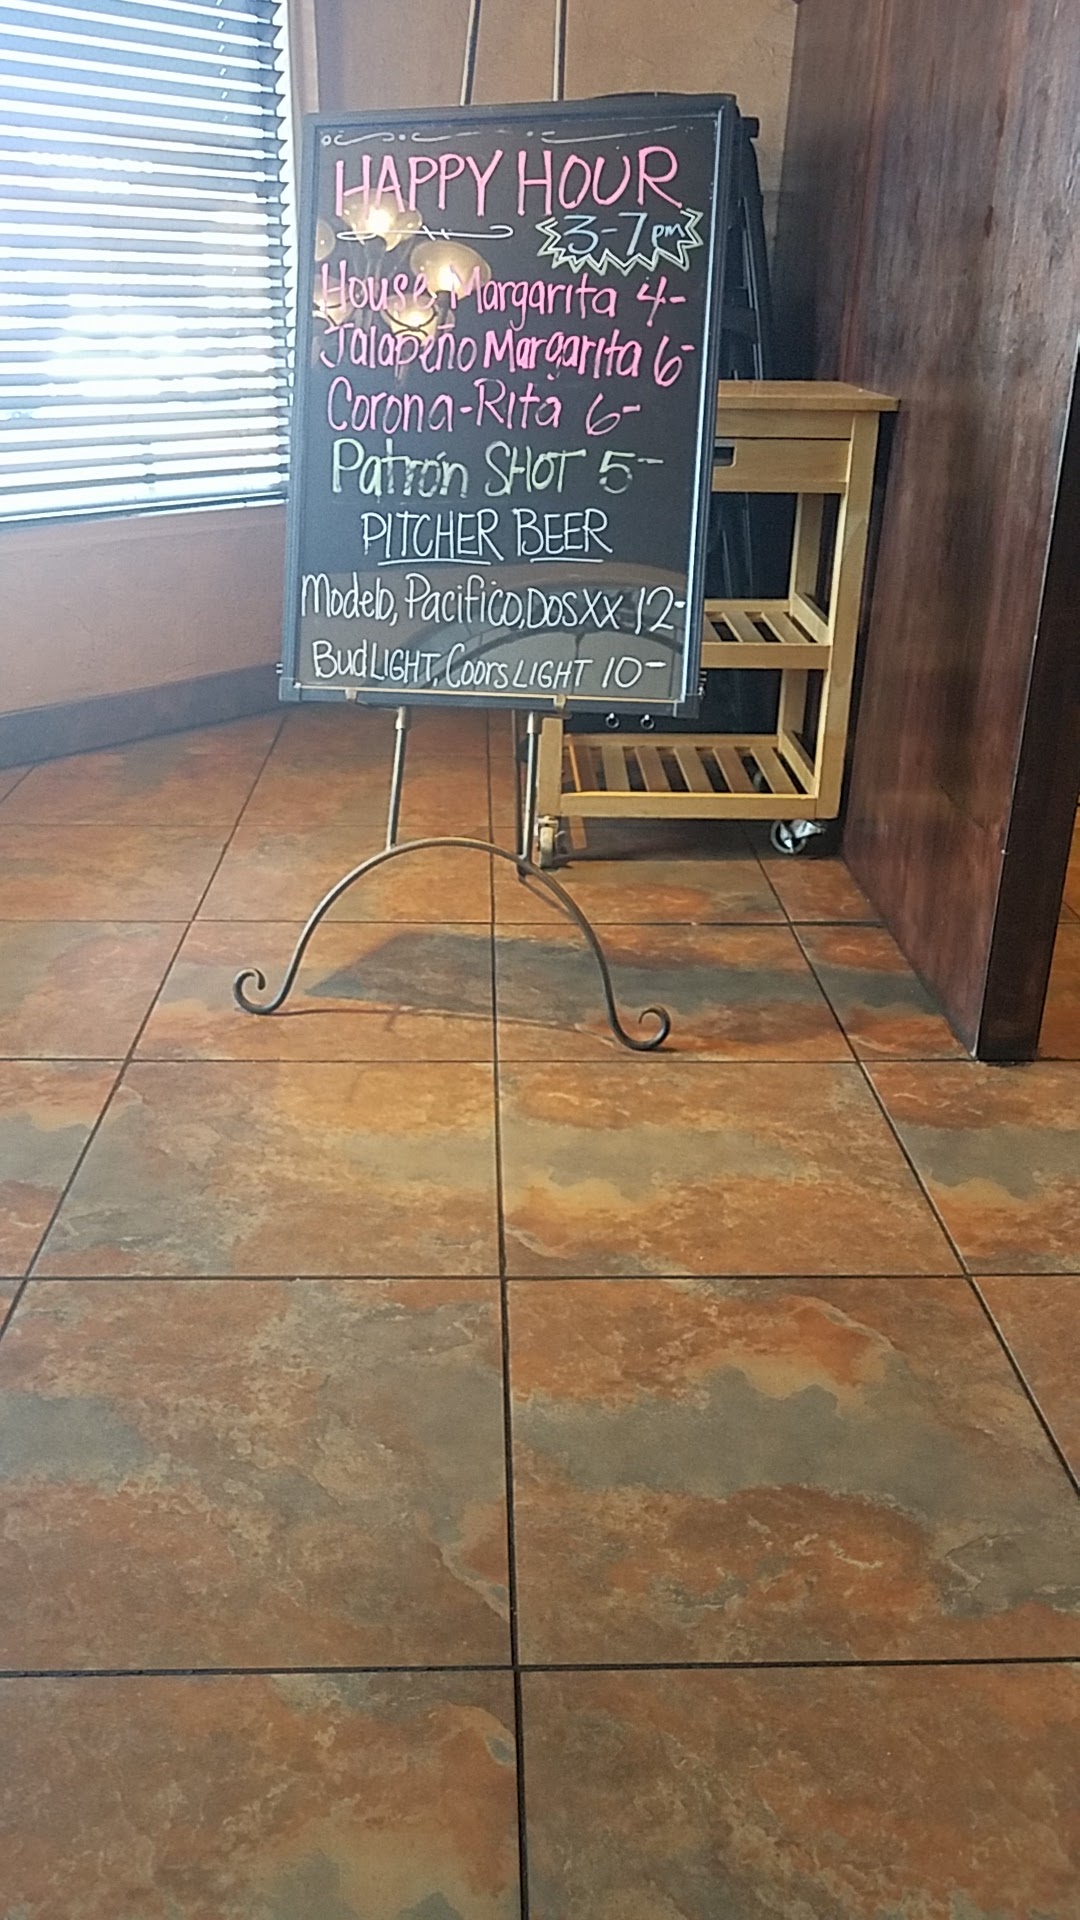 HAPPY HOUR
3-7pm
House Margarita 4-
Jalapeño Margarita 6-
Corona-Rita 6-
Patrón SHOT 5-
PITCHER BEER
Modelo, Pacifico, Dos XX 12-
Bud LIGHT, Coors LIGHT 10-